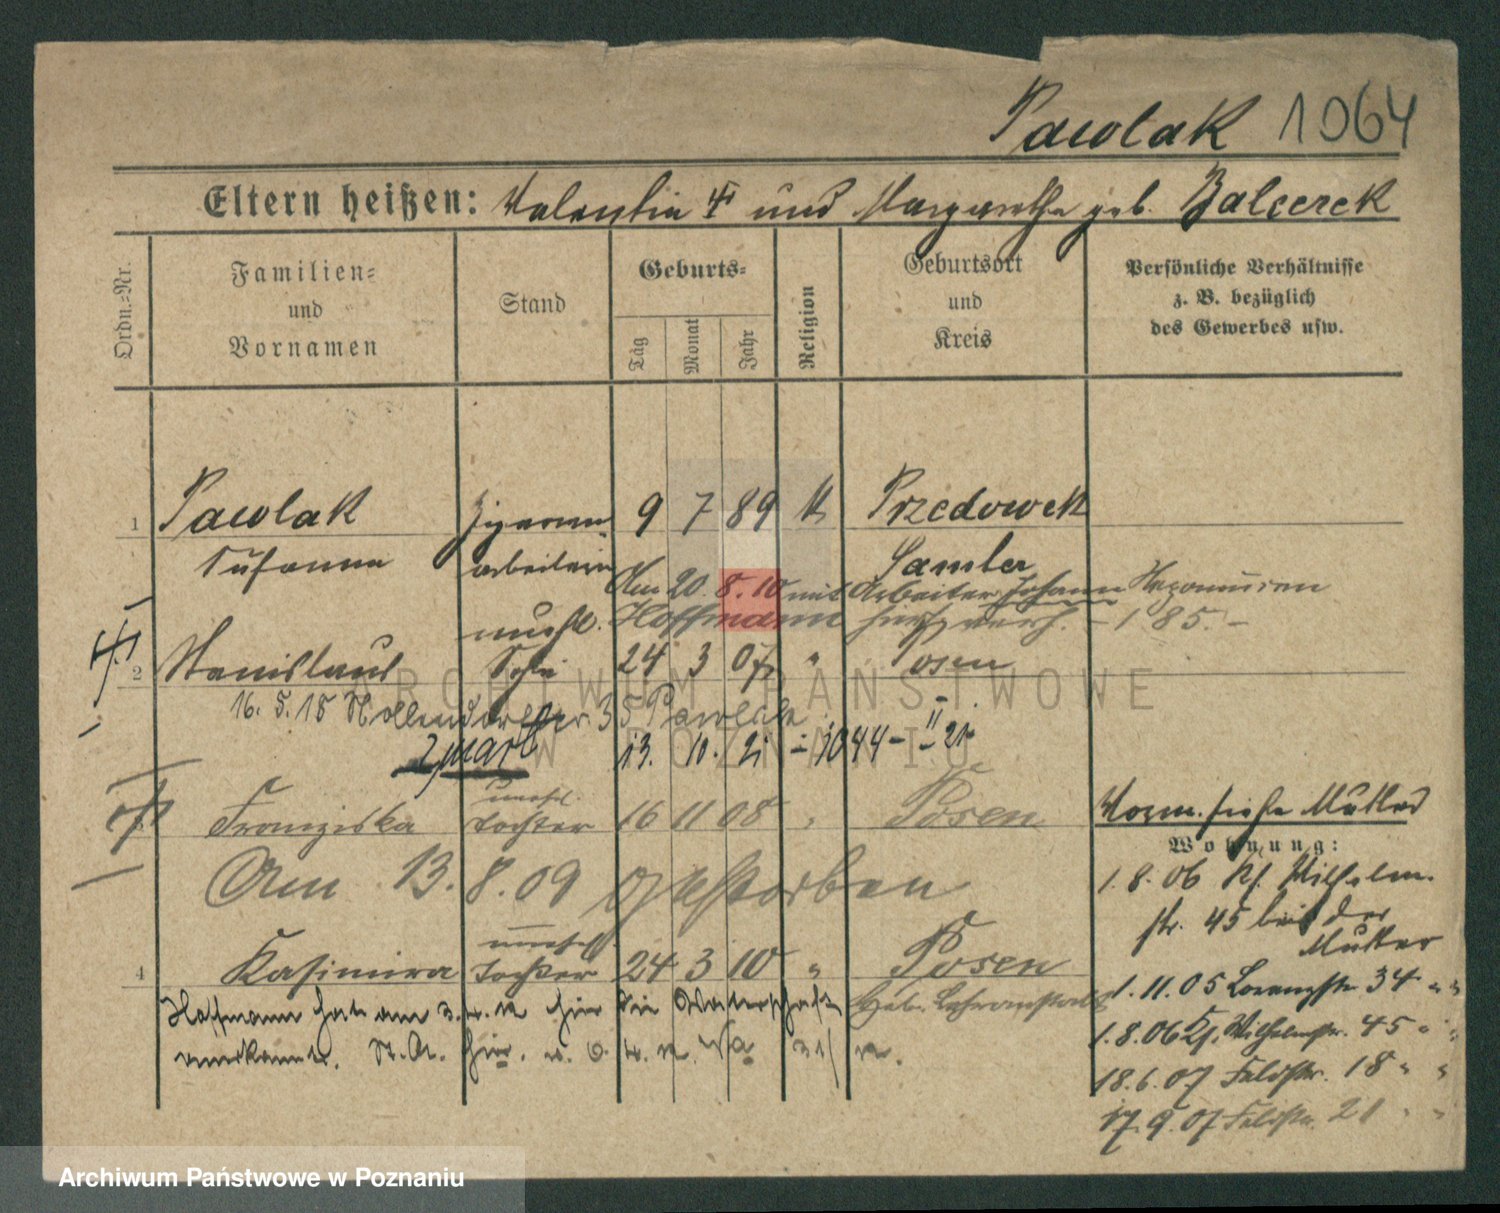 Pawlak 1064
Eltern heißen: Valentin † und Margarethe geb. Balcerek
Ordn.-Nr.
Familien- und Vornamen
Stand
Geburts-
Tag Monat Jahr
Religion
Geburtsort und Kreis
Persönliche Verhältnisse z. B. bezüglich des Gewerbes usw.
1 Pawlak Zigarren 9 7 89 k Przedowek
Susanna arbeiterin Samter
Am 20. 8. 10 mit Arbeiter Johann Nepomucen
unehl. Hoffmann hier verh. - 185. -
2 Stanislaus Sohn 24 3 07 " Posen
16. 5. 18 Nollendorfstr. 35 Pawlak
2 mark 13. 10. 21 - 1044 - II 21
unehl.
Franziska Tochter 16 11 08 " Posen
Am 13. 8. 09 gestorben
Vorm. siehe Mutter
Wohnung:
1. 8. 06 Kl. Wilhelm
str. 45 bei der
Mutter
unehel.
4 Kasimira Tochter 24 3 10 " Posen
Hoffmann hat am hier die Vaterschaft Heb. Lehranstalt
anerkannt. St. A.
1. 11. 05 Lorenzstr. 34 " "
1. 8. 06 Kl. Wilhelmstr. 45 " "
18. 6. 07 Feldstr. 18 " "
17. 9. 07 Feldstr. 21 " "
ARCHIWUM PAŃSTWOWE
W POZNANIU
Archiwum Państwowe w Poznaniu